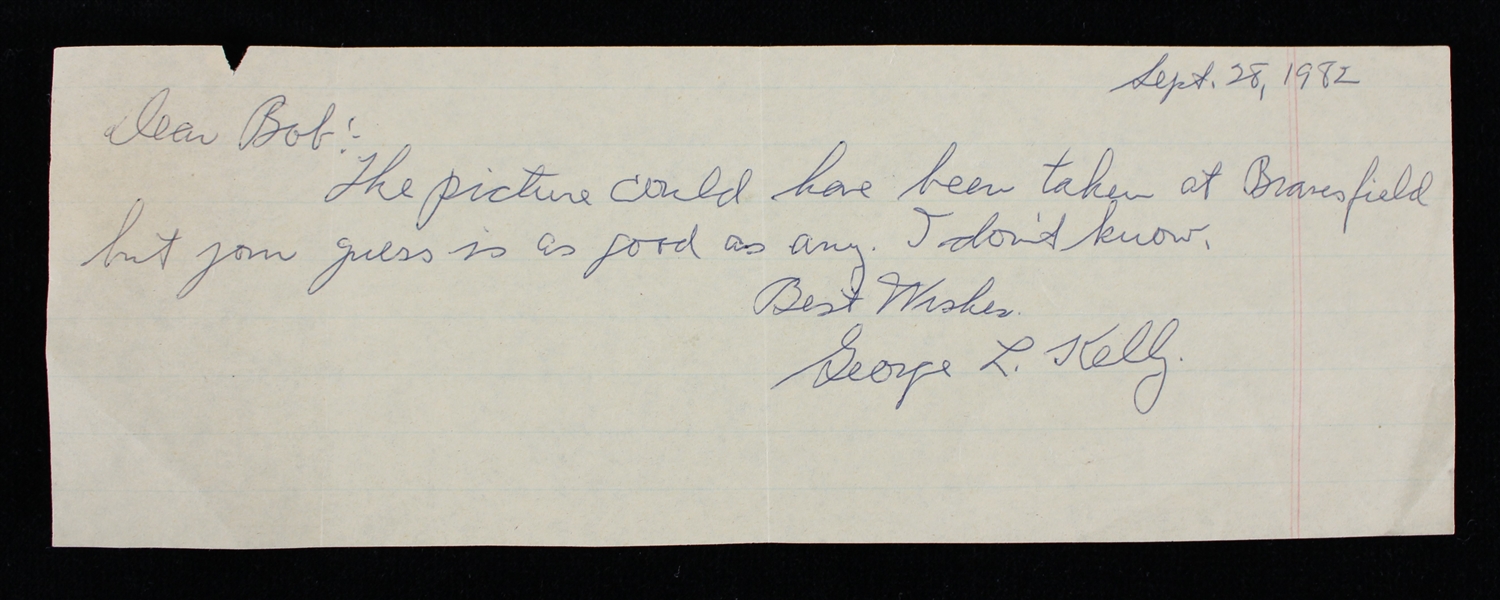 Sept. 28, 1982
Dear Bob:
The picture could have been taken at Bravesfield
but your guess is as good as any. I don't know.
Best Wishes.
George L. Kelly.